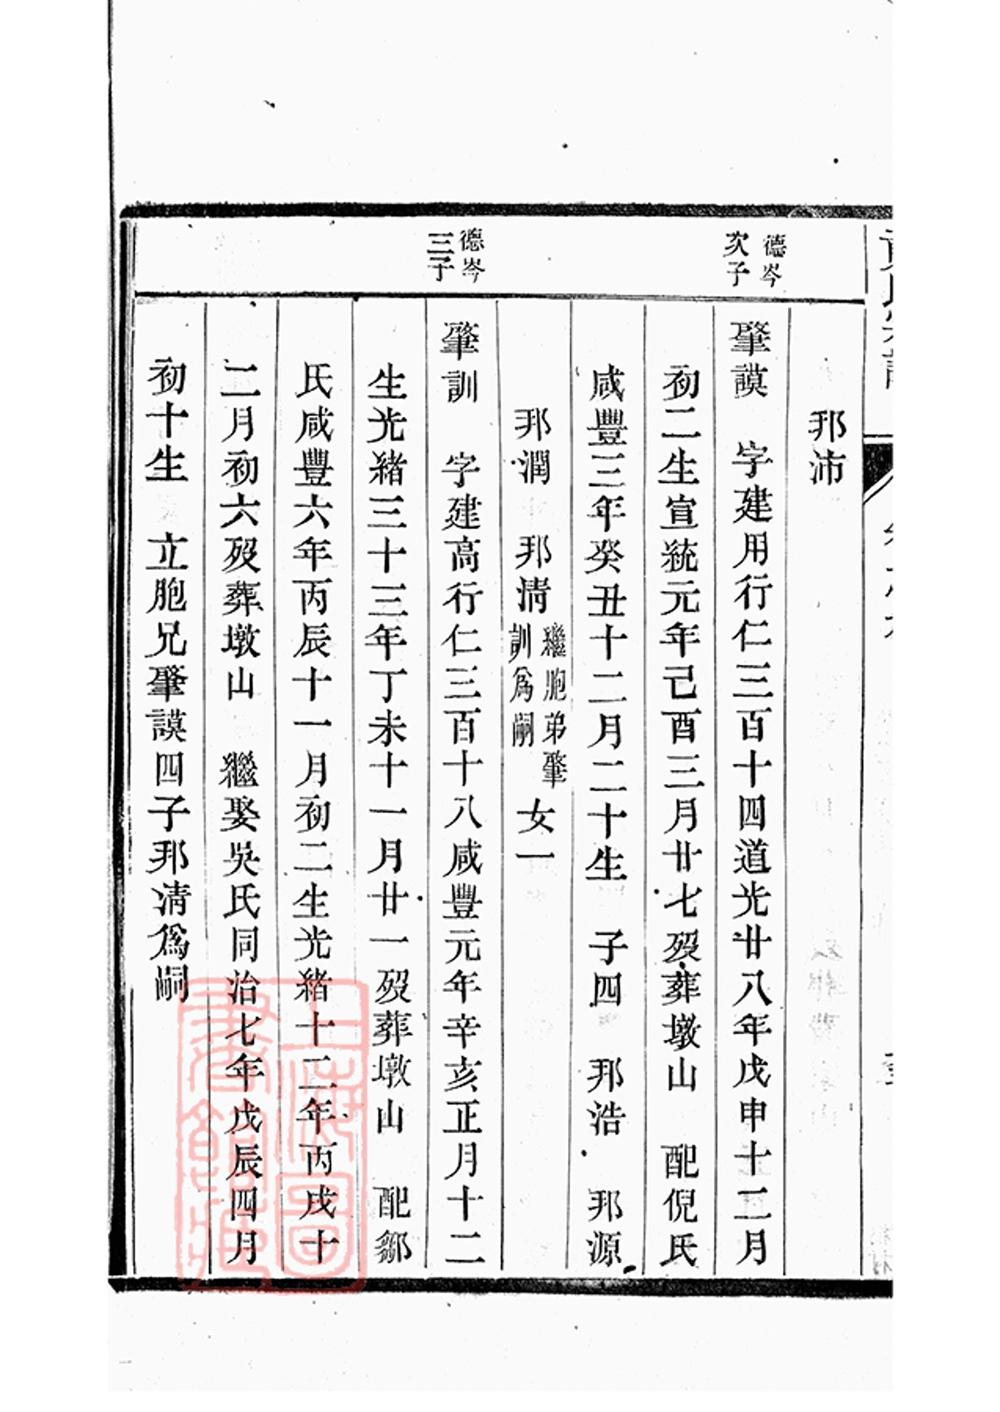 邦沛
德岑
次子
肇謨　字建用行仁三百十四道光廿八年戊申十二月
初二生宣統元年己酉三月廿七歿葬墩山　配倪氏
咸豐三年癸丑十二月二十生　子四　邦浩　邦源
邦潤　邦淸
繼胞弟肇
訓爲嗣
女一
德岑
三子
肇訓　字建高行仁三百十八咸豐元年辛亥正月十二
生光緒三十三年丁未十一月廿一歿葬墩山　配鄒
氏咸豐六年丙辰十一月初二生光緒十二年丙戌十
二月初六歿葬墩山　繼娶吳氏同治七年戊辰四月
初十生　立胞兄肇謨四子邦淸爲嗣
上海圖
書館藏